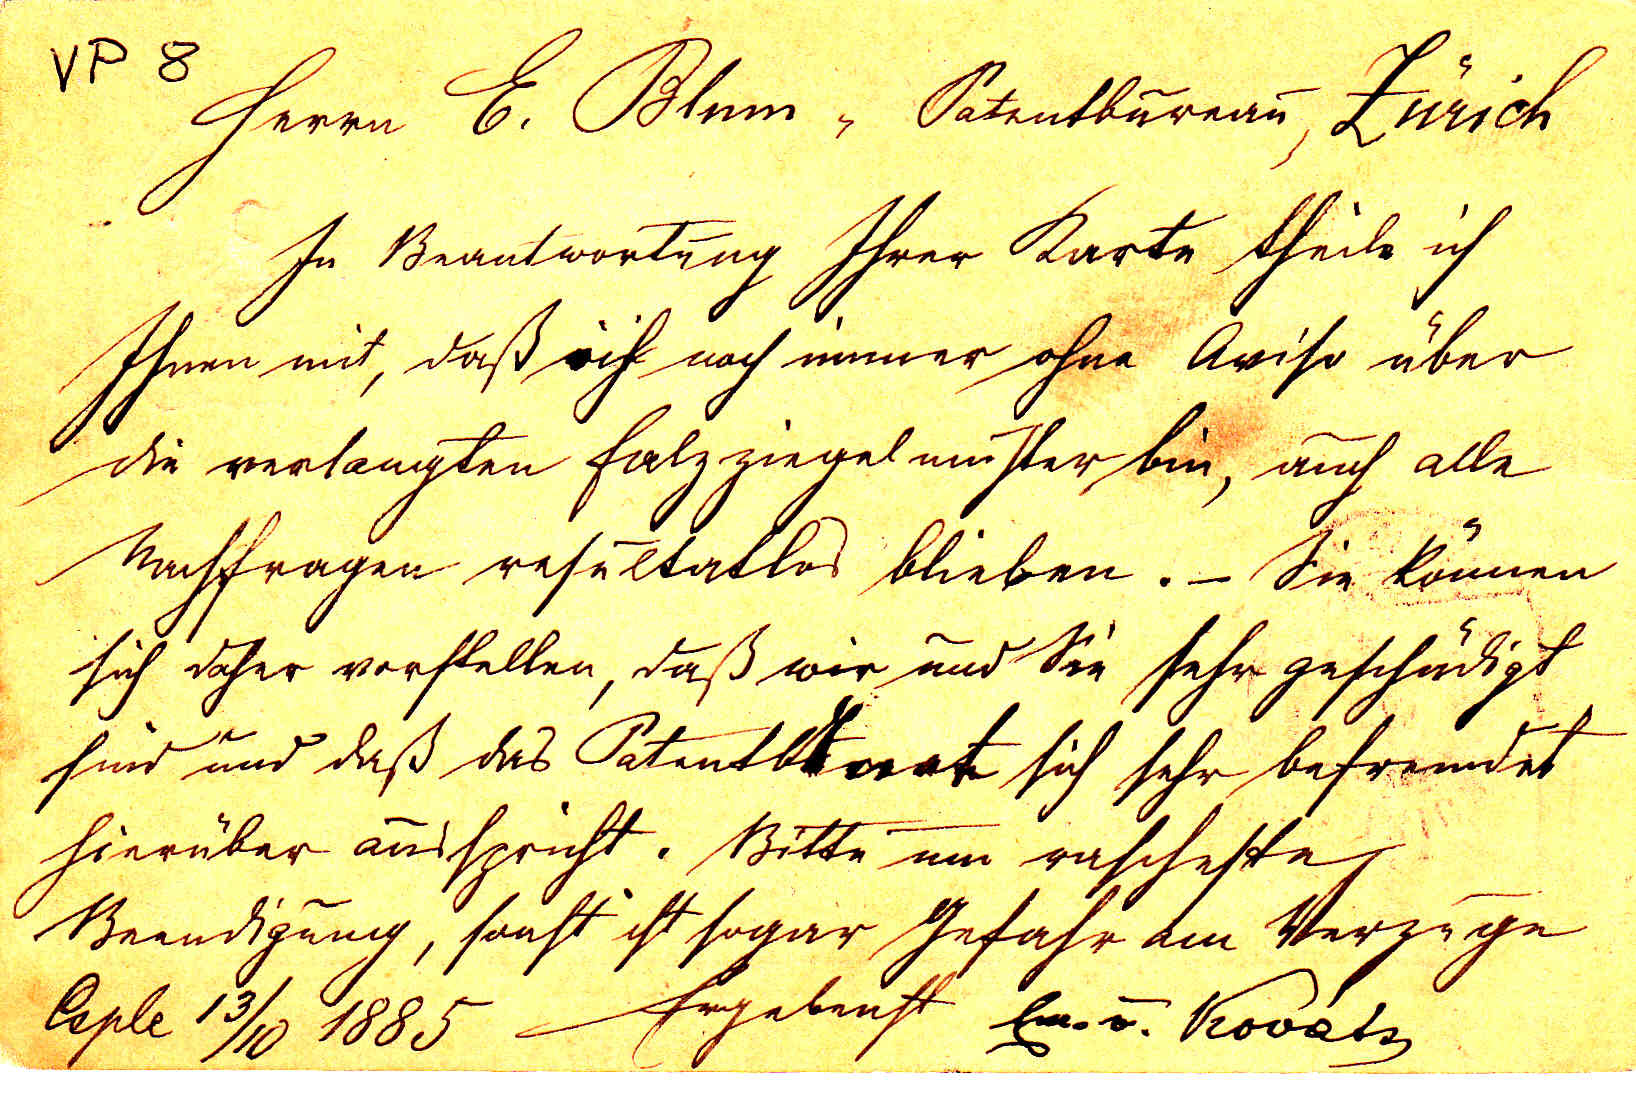 VP 8
Herrn E. Blum, Patentbureau, Zürich
In Beantwortung Ihrer Karte theile ich
Ihnen mit, daß ich noch immer ohne Aviso über
die verlangten Falzziegelmuster bin, auch alle
Nachfragen resultatlos blieben. – Sie können
sich daher vorstellen, daß wir und Sie sehr geschädigt
sind und daß das sich sehr befremdet
hierüber ausspricht. Bitte um rascheste
Beendigung, sonst ist sogar Gefahr am Verzuge
13/10 1885 Ergebenst Em. v. Kováts